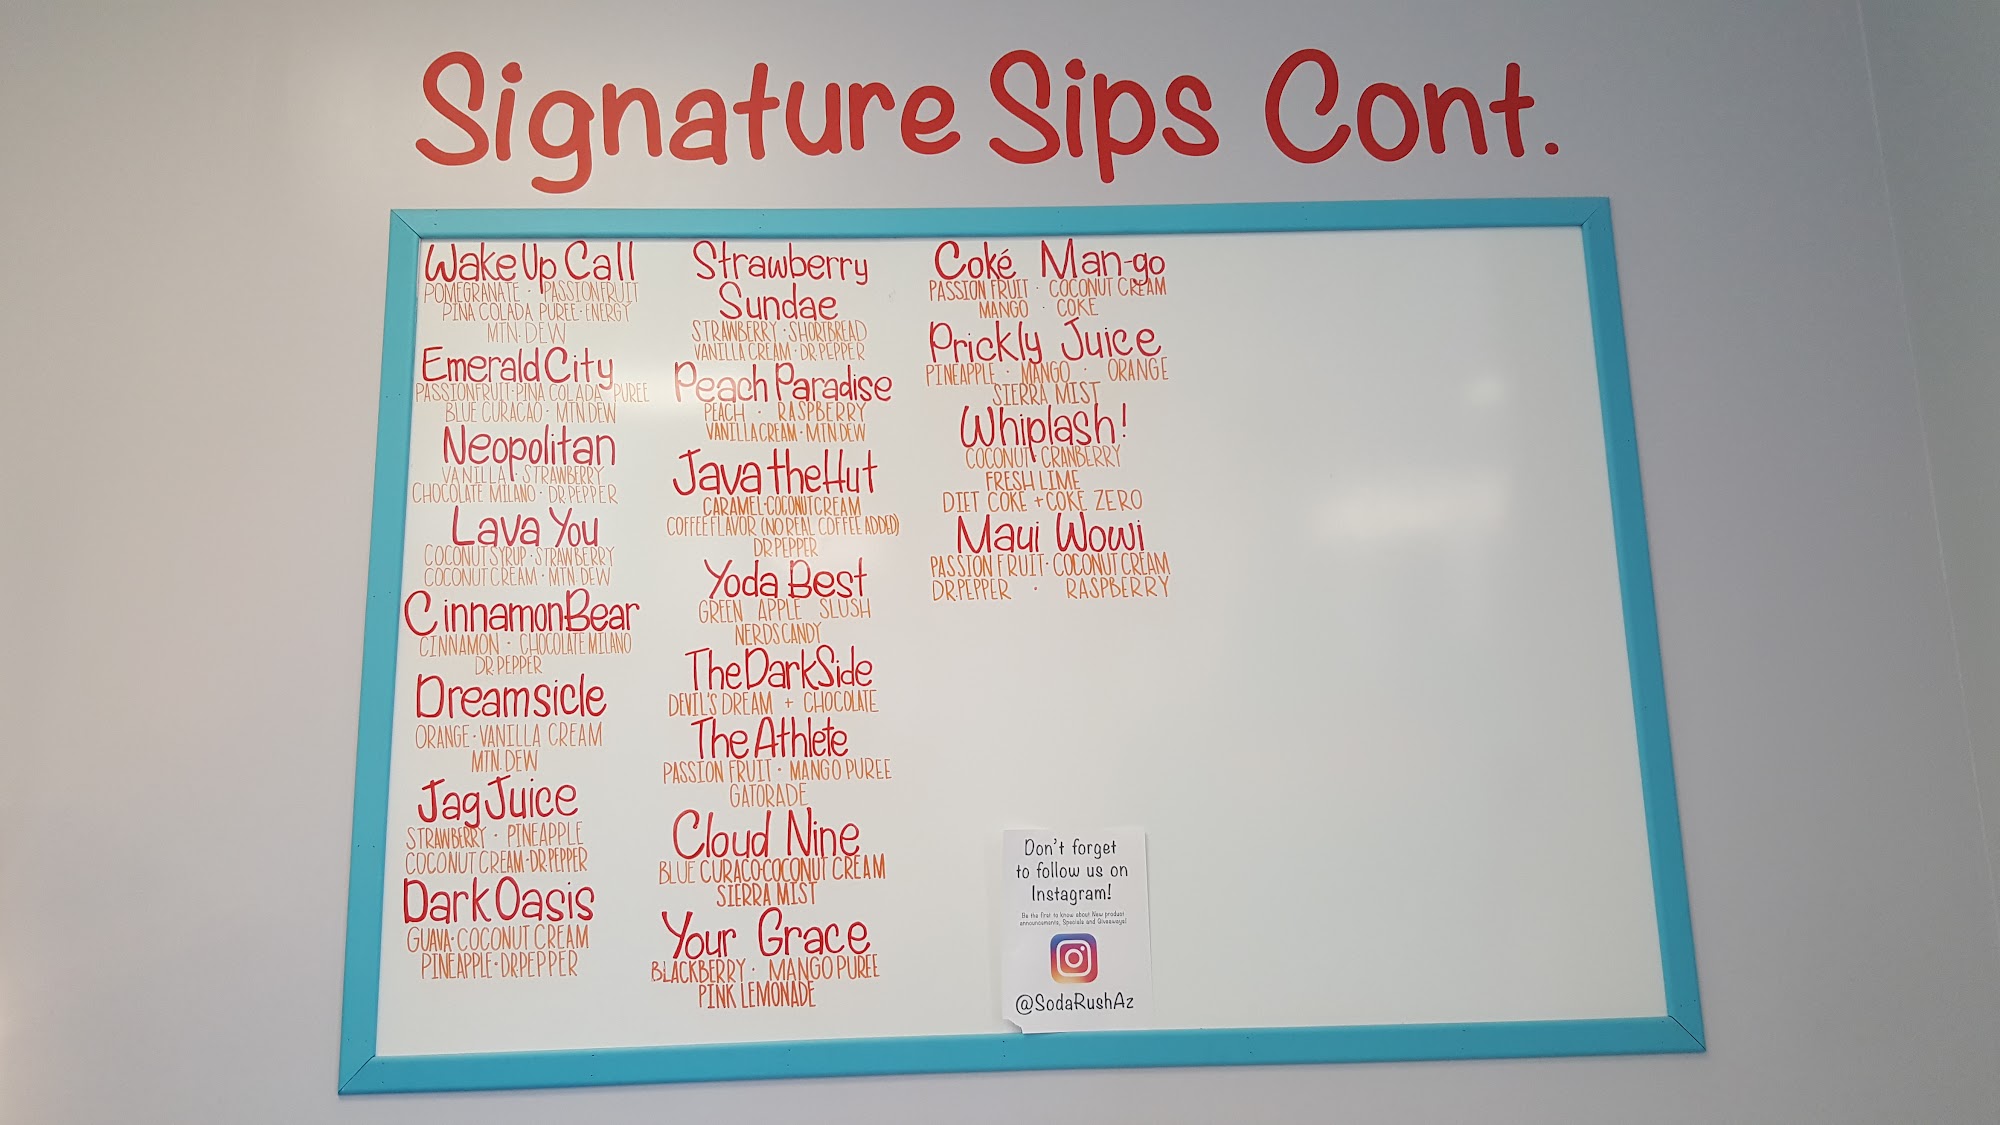 Signature Sips Cont.
Wake Up Call
POMEGRANATE · PASSIONFRUIT
PINA COLADA PUREE · ENERGY
MTN. DEW
Emerald City
PASSIONFRUIT · PINA COLADA PUREE
BLUE CURACAO · MTN DEW
Neopolitan
VANILLA · STRAWBERRY
CHOCOLATE MILANO · DR PEPPER
Lava You
COCONUT SYRUP · STRAWBERRY
COCONUT CREAM · MTN. DEW
Cinnamon Bear
CINNAMON · CHOCOLATE MILANO
DR. PEPPER
Dreamsicle
ORANGE · VANILLA CREAM
MTN. DEW
Jag Juice
STRAWBERRY · PINEAPPLE
COCONUT CREAM · DR. PEPPER
Dark Oasis
GUAVA · COCONUT CREAM
PINEAPPLE · DR. PEPPER
Strawberry
Sundae
STRAWBERRY · SHORTBREAD
VANILLA CREAM · DR. PEPPER
Peach Paradise
PEACH · RASPBERRY
VANILLA CREAM · MTN DEW
Java the Hut
CARAMEL · COCONUT CREAM
COFFEE FLAVOR (NO REAL COFFEE ADDED)
DR PEPPER
Yoda Best
GREEN APPLE SLUSH
NERDS CANDY
The Dark Side
DEVIL'S DREAM + CHOCOLATE
The Athlete
PASSION FRUIT · MANGO PUREE
GATORADE
Cloud Nine
BLUE CURACO · COCONUT CREAM
SIERRA MIST
Your Grace
BLACKBERRY · MANGO PUREE
PINK LEMONADE
Coké Man-go
PASSION FRUIT · COCONUT CREAM
MANGO · COKE
Prickly Juice
PINEAPPLE · MANGO · ORANGE
SIERRA MIST
Whiplash!
COCONUT · CRANBERRY
FRESH LIME
DIET COKE + COKE ZERO
Maui Wowi
PASSION FRUIT · COCONUT CREAM
DR. PEPPER · RASPBERRY
Don't forget
to follow us on
Instagram!
Be the first to know about New product
announcements, Specials and Giveaways!
@SodaRushAz